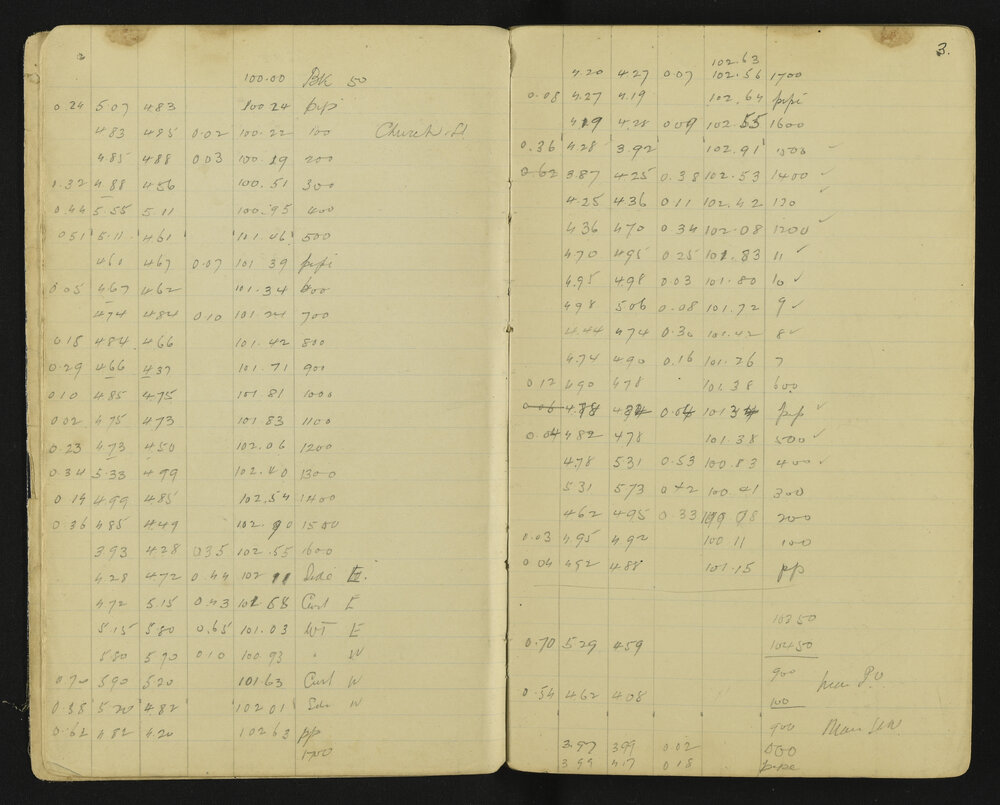 2
100.00 BK 50
0.24 5.07 4.83 100.24 pipi
4.83 4.85 0.02 100.22 100 Church St
4.85 4.88 0.03 100.19 200
0.32 4.88 4.56 100.51 300
0.44 5.55 5.11 100.95 400
0.51 5.11 4.61 101.46 500
4.61 4.67 0.07 101.39 pipi
0.05 4.67 4.62 101.34 600
4.74 4.84 0.10 101.24 700
0.18 4.84 4.66 101.42 800
0.29 4.66 4.37 101.71 900
0.10 4.85 4.75 101.81 1000
0.02 4.75 4.73 101.83 1100
0.23 4.73 4.50 102.06 1200
0.34 5.33 4.99 102.40 1300
0.14 4.99 4.85 102.54 1400
0.36 4.85 4.49 102.90 1500
3.93 4.28 0.35 102.55 1600
4.28 4.72 0.44 102.11 Side E
4.72 5.15 0.43 101.68 Curt E
5.15 5.80 0.65 101.03 WT E
5.80 5.90 0.10 100.93 " W
0.70 5.90 5.20 101.63 Curt W
0.38 5.20 4.82 102.01 Side W
0.62 4.82 4.20 102.63 pp
1700
3.
102.63
4.20 4.27 0.07 102.56 1700
0.08 4.27 4.19 102.64 pipi
4.19 4.28 0.09 102.55 1600
0.36 4.28 3.92 102.91 1500 ✓
0.62 3.87 4.25 0.38 102.53 1400 ✓
4.25 4.36 0.11 102.42 130 ✓
4.36 4.70 0.34 102.08 1200 ✓
4.70 4.95 0.25 101.83 11 ✓
4.95 4.98 0.03 101.80 10 ✓
4.98 5.06 0.08 101.72 9 ✓
4.44 4.74 0.30 101.42 8 ✓
4.74 4.90 0.16 101.26 7
0.12 4.90 4.78 101.38 600
0.06 4.78 4.84 0.04 101.34 pp ✓
0.04 4.82 4.78 101.38 500 ✓
4.78 5.31 0.53 100.83 400 ✓
5.31 5.73 0.42 100.41 300
4.62 4.95 0.33 100.08 200
0.03 4.95 4.92 100.11 100
0.04 4.92 4.88 101.15 pp
10350
0.70 5.29 4.59 10450
900 near P.O.
0.54 4.62 4.08 100
900
3.97 3.99 0.02 000
3.99 4.17 0.18 pipe